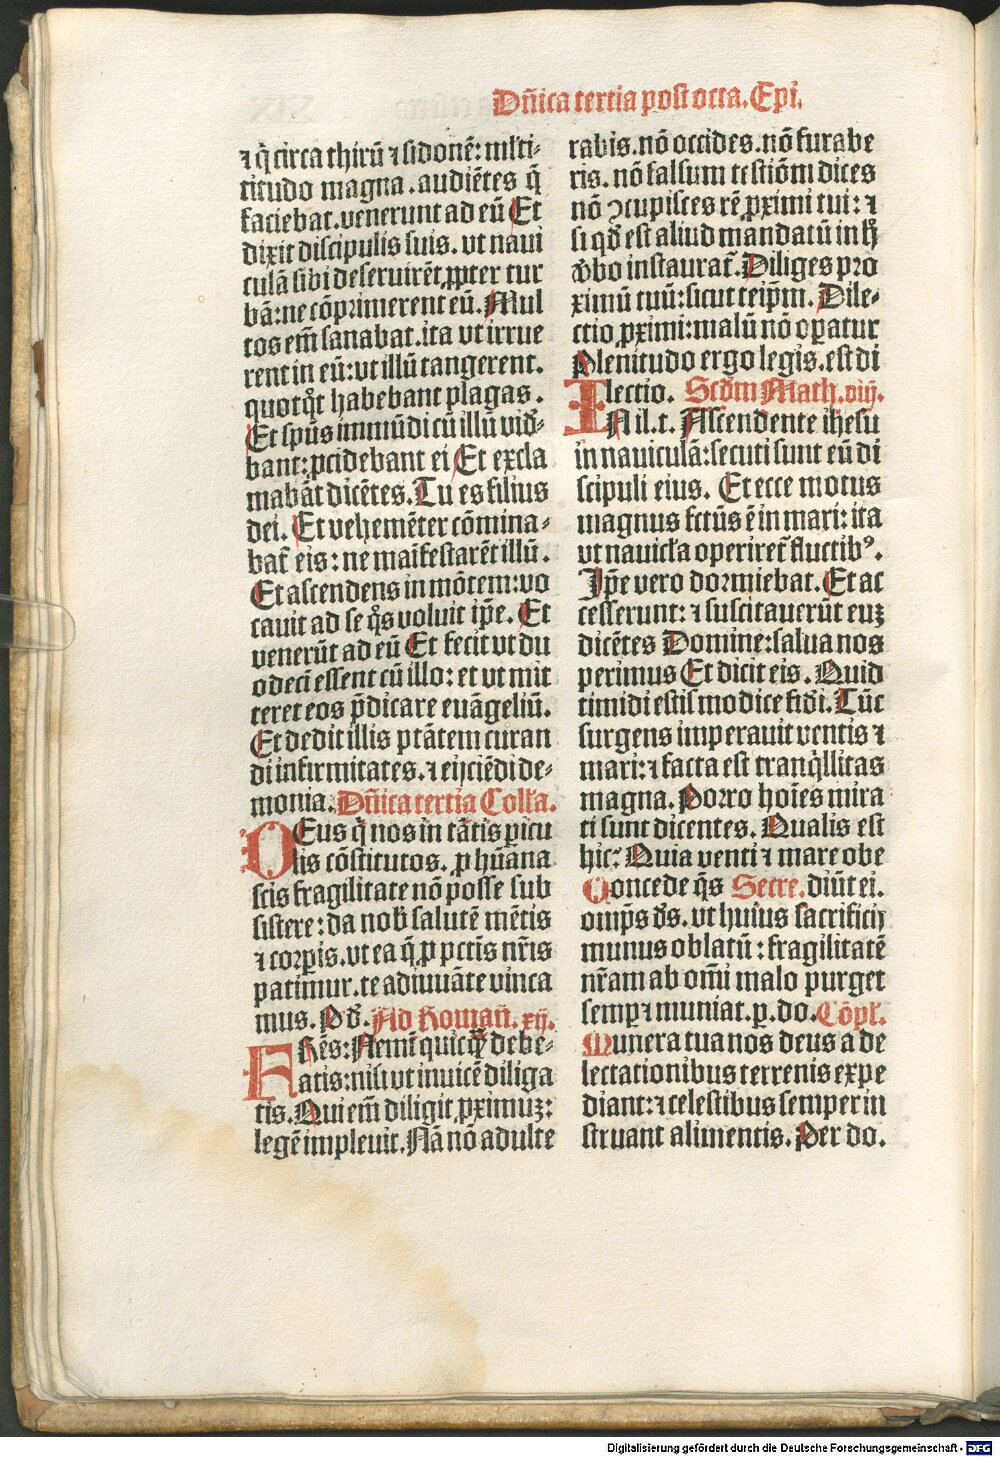 Dn̄ica tertia post octa. Epī.
⁊ q̄ circa thirū ⁊ sidonē: ml̄ti-
titudo magna. audiētes q̄
faciebat. venerunt ad eū Et
dixit discipulis suis. vt naui
culā sibi deseruirēt ꝓpter tur
bā: ne cōprimerent eū. Mul
tos em̄ sanabat. ita vt irrue
rent in eū: vt illū tangerent.
quotq̄t habebant plagas.
Et sp̄us immūdi cū illū vid̄e-
bant: ꝓcidebant ei Et excla
mabāt dicētes. Tu es filius
dei. Et vehemēter cōmina-
bat̄ eis: ne maīfestarēt illū.
Et ascendens in mōtem: vo
cauit ad se q̄s voluit ip̄e. Et
venerūt ad eū Et fecit vt du
odecī essent cū illo: et vt mit
teret eos p̄dicare euāgeliū.
Et dedit illis ptātem curan
di infirmitates. ⁊ eijciēdi de-
monia. Dn̄ica tertia Coll̄a.
DEus q̄ nos in tātis ꝑicu
lis cōstitutos. ꝓ hūana
scis fragilitate nō posse sub
sistere: da nob̄ salutē mētis
⁊ corꝑis. vt ea q̄ ꝓ pctīs nr̄is
patimur. te adiuuāte vinca
mus. Pd̄. Ad Roman̄. xij.
FRēs: Nemī quicq̄ debe-
atis: nisi vt inuicē diliga
tis. Qui em̄ diligit ꝓximuꝫ:
legē impleuit. Nā nō adulte
rabis. nō occides. nō furabe
ris. nō falsum testiōm dices
nō ꝯcupisces rē ꝓximi tui: ⁊
si qd̄ est aliud mandatū in h̄
v̄bo instaurat̄. Diliges pro
ximū tuū: sicut teip̄m. Dile-
ctio ꝓximi: malū nō oꝑatur
Plenitudo ergo legis. est di
lectio. Scd̄m Math. viij.
IN il. t. Ascendente ihesu
in nauiculā: secuti sunt eū di
scipuli eius. Et ecce motus
magnus fctūs ē in mari: ita
vt nauicl̄a operiret̄ fluctibꝰ.
Ip̄e vero dormiebat. Et ac
cesserunt: ⁊ suscitauerūt euꝫ
dicētes Domine: salua nos
perimus Et dicit eis. Quid
timidi estis modice fidi. Tūc
surgens imperauit ventis ⁊
mari: ⁊ facta est tranq̄llitas
magna. Porro hoīes mira
ti sunt dicentes. Qualis est
hic? Quia venti ⁊ mare obe
Concede q̄s Secre. diūt ei.
omp̄s ds̄. vt huius sacrificij
munus oblatū: fragilitatē
nr̄am ab om̄i malo purget
semꝑ ⁊ muniat. ꝑ. do. Cōpl̄.
Munera tua nos deus a de
lectationibus terrenis expe
diant: ⁊ celestibus semper in
struant alimentis. Per do.
Digitalisierung gefördert durch die Deutsche Forschungsgemeinschaft - DFG